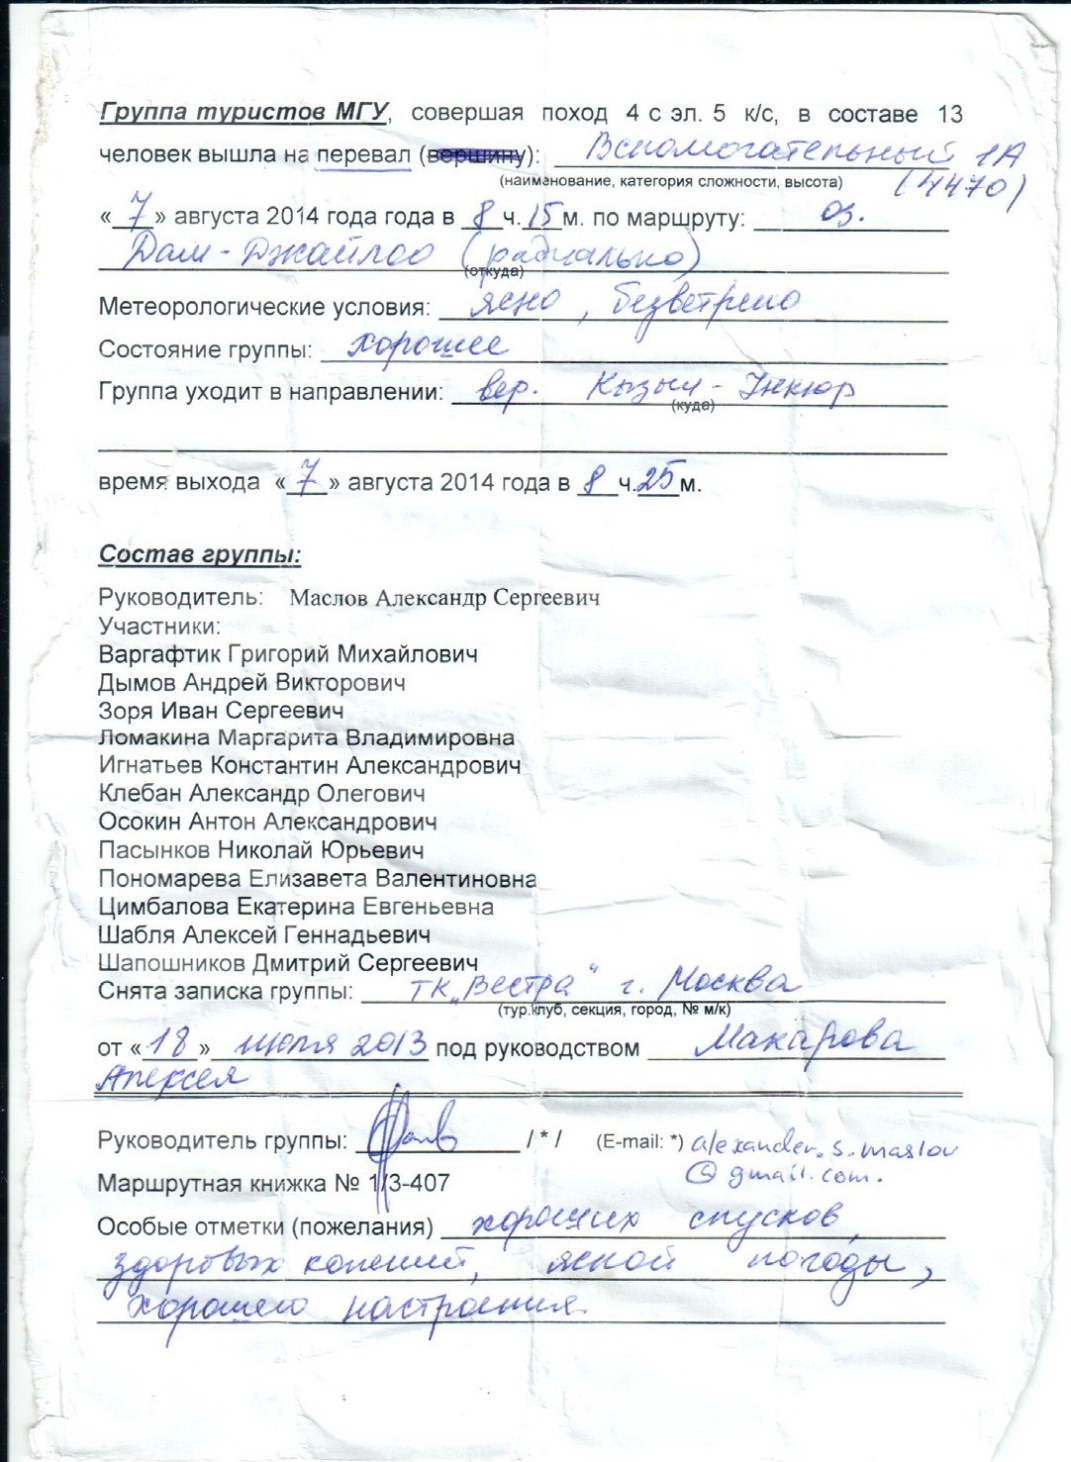 Группа туристов МГУ, совершая поход 4 с эл. 5 к/с, в составе 13
человек вышла на перевал (вершину): Вспомогательный 1А
(наименование, категория сложности, высота) (4470)
«7» августа 2014 года года в 8 ч. 15 м. по маршруту: оз.
Дам-Джайлоо (радиально)
(откуда)
Метеорологические условия: ясно, безветрено
Состояние группы: хорошее
Группа уходит в направлении: вер. Кызыл-Ункюр
(куда)
время выхода «7» августа 2014 года в 8 ч. 25 м.
Состав группы:
Руководитель: Маслов Александр Сергеевич
Участники:
Варгафтик Григорий Михайлович
Дымов Андрей Викторович
Зоря Иван Сергеевич
Ломакина Маргарита Владимировна
Игнатьев Константин Александрович
Клебан Александр Олегович
Осокин Антон Александрович
Пасынков Николай Юрьевич
Пономарева Елизавета Валентиновна
Цимбалова Екатерина Евгеньевна
Шабля Алексей Геннадьевич
Шапошников Дмитрий Сергеевич
Снята записка группы: ТК „Вестра“ г. Москва
(тур.клуб, секция, город, № м/к)
от «18» июля 2013 под руководством Макарова
Алексея
Руководитель группы: / * / (E-mail: *) alexander.s.maslov
@gmail.com.
Маршрутная книжка № 1/3-407
Особые отметки (пожелания) хороших спусков,
здоровых коленей, ясной погоды,
хорошего настроения.